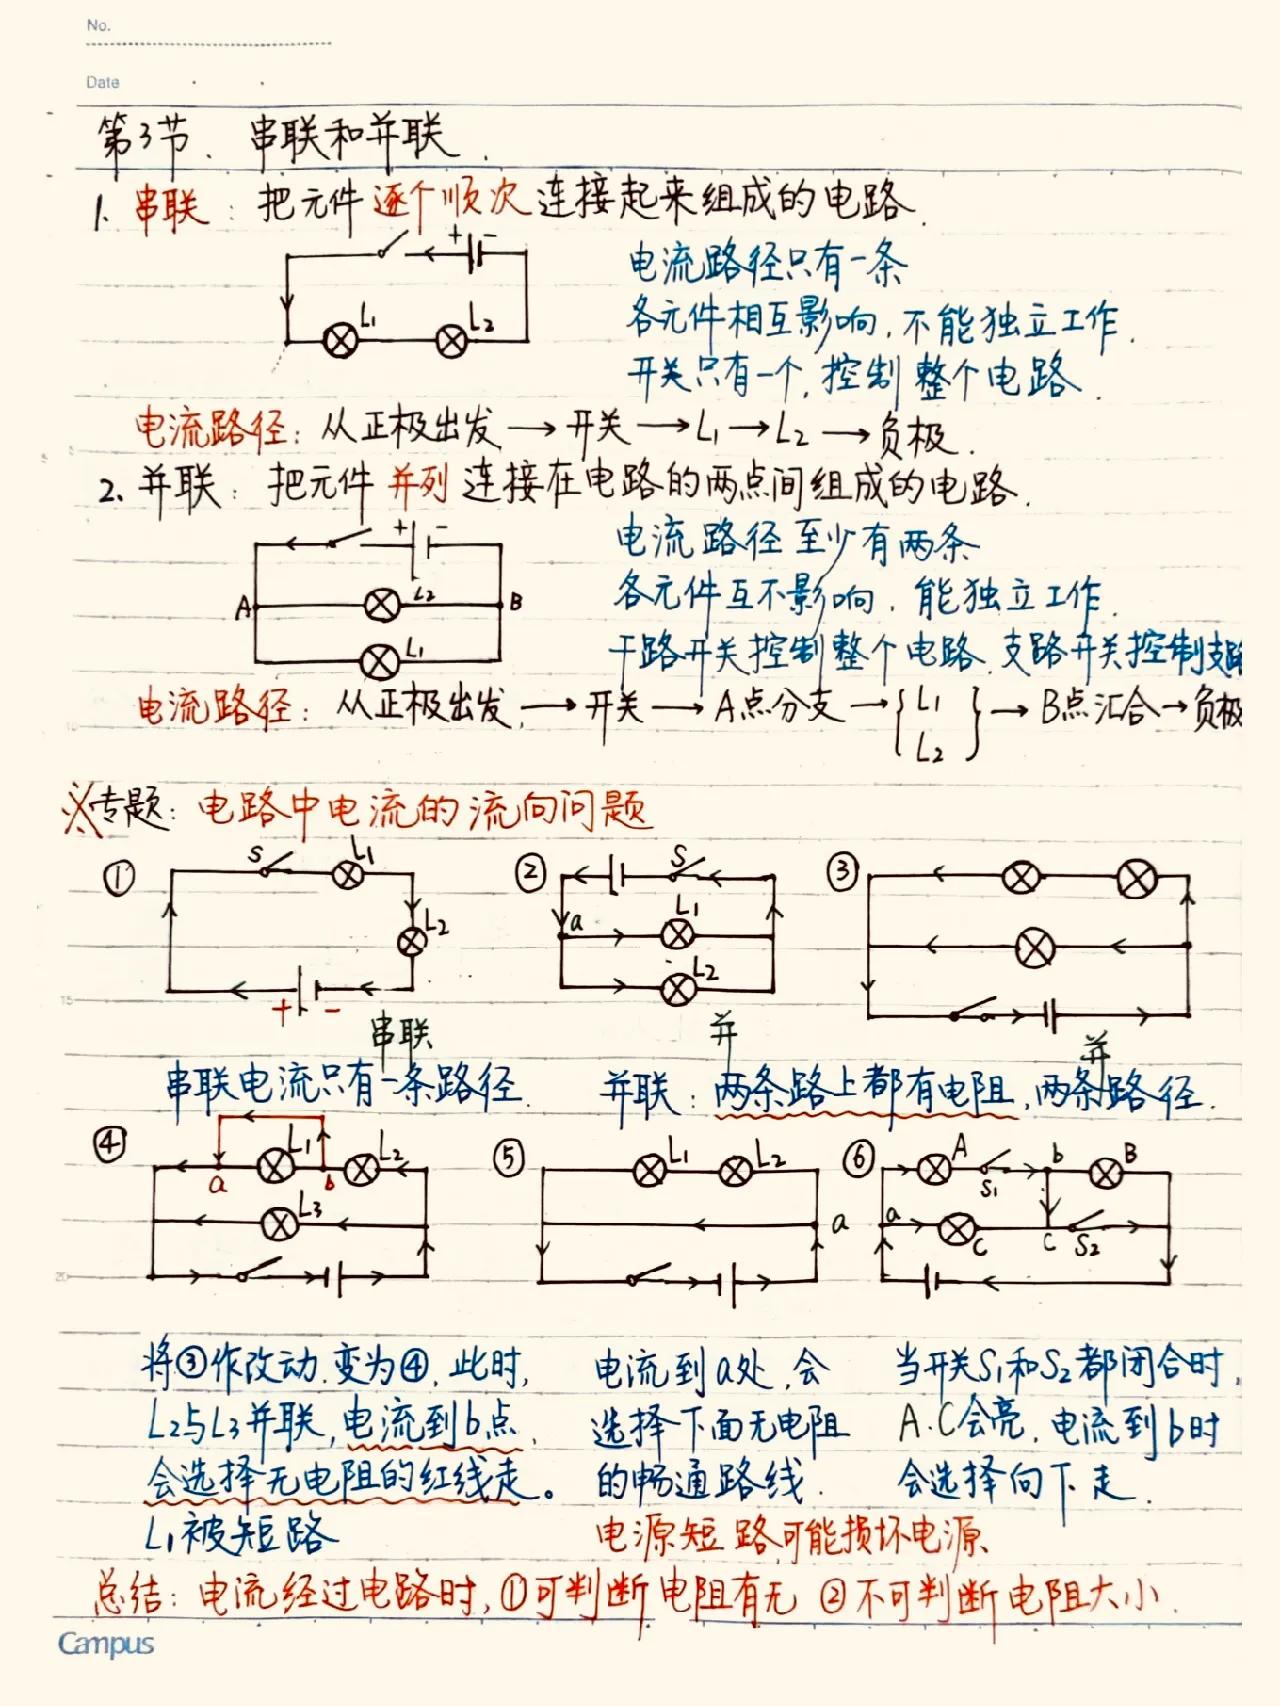 No.
Date
第3节、串联和并联
1. 串联：把元件逐个顺次连接起来组成的电路.
+ -
L1 L2
电流路径只有一条
各元件相互影响，不能独立工作.
开关只有一个，控制整个电路.
电流路径：从正极出发→开关→L1→L2→负极.
2. 并联：把元件并列连接在电路的两点间组成的电路.
+ -
A L2 B
L1
电流路径至少有两条
各元件互不影响，能独立工作.
干路开关控制整个电路.支路开关控制支路
电流路径：从正极出发,→开关→A点分支→{L1 L2}→B点汇合→负极
※专题：电路中电流的流向问题
① S L1
L2
+ -
串联
② S
a L1
L2
并
③
并
串联电流只有一条路径.
并联：两条路上都有电阻,两条路径.
④ L1 L2
a b
L3
⑤ L1 L2
a
⑥ A S1 b B
a C C S2
将③作改动.变为④，此时,
L2与L3并联,电流到b点,
会选择无电阻的红线走。
L1被短路
电流到a处,会
选择下面无电阻
的畅通路线.
电源短路,可能损坏电源.
当开关S1和S2都闭合时,
A.C会亮,电流到b时
会选择向下走.
总结：电流经过电路时,①可判断电阻有无 ②不可判断电阻大小.
Campus